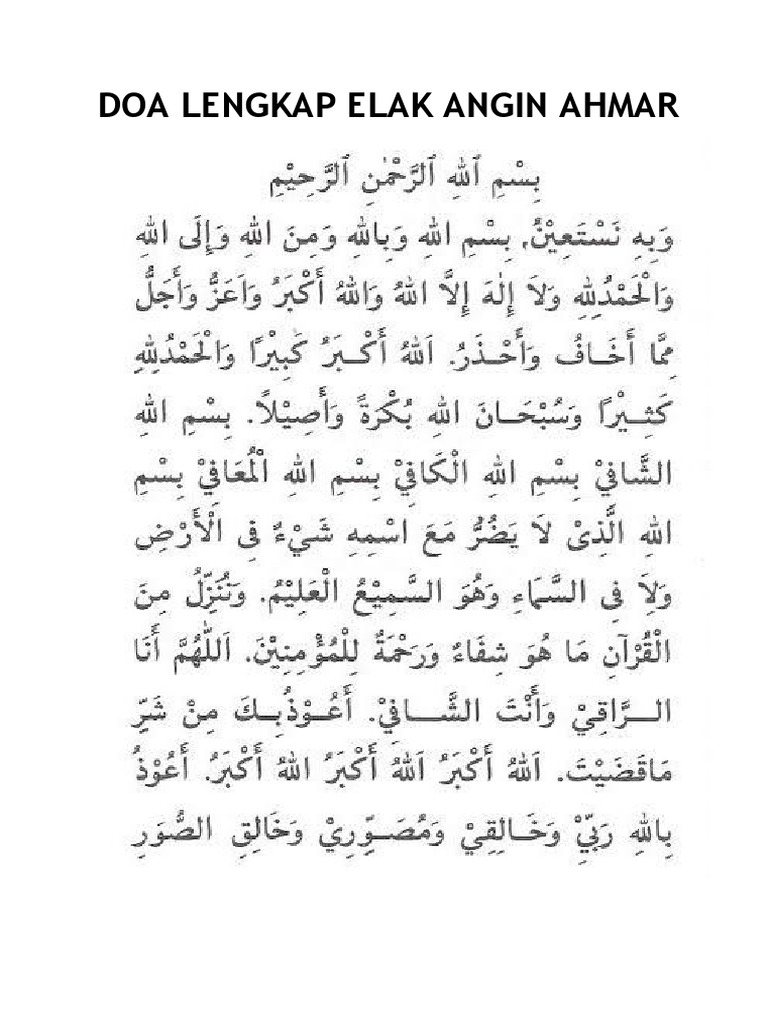 DOA LENGKAP ELAK ANGIN AHMAR
بِسْمِ ٱللهِ ٱلرَّحْمٰنِ ٱلرَّحِيْمِ
وَبِهِ نَسْتَعِيْنُ, بِسْمِ اللهِ وَبِاللهِ وَمِنَ اللهِ وَإِلَى اللهِ
وَالْحَمْدُلِلهِ وَلاَ إِلٰهَ إِلَّا اللهُ وَاللهُ أَكْبَرُ وَاَعَزُّ وَأَجَلُّ
مِمَّا أَخَافُ وَأَحْذَرُ. اَللهُ أَكْبَرُ كَبِيْرًا وَالْحَمْدُلِلهِ
كَثِيْرًا وَسُبْحَانَ اللهِ بُكْرَةً وَأَصِيْلاً. بِسْمِ اللهِ
الشَّافِيْ بِسْمِ اللهِ الْكَافِيْ بِسْمِ اللهِ الْمُعَافِيْ بِسْمِ
اللهِ الَّذِىْ لَا يَضُرُّ مَعَ اسْمِهِ شَيْءٌ فِى الْأَرْضِ
وَلَا فِى السَّمَاءِ وَهُوَ السَّمِيْعُ الْعَلِيْمُ. وَنُنَزِّلُ مِنَ
الْقُرْآنِ مَا هُوَ شِفَاءٌ وَرَحْمَةٌ لِلْمُؤْمِنِيْنَ. اَللّٰهُمَّ أَنَا
الرَّاقِيْ وَأَنْتَ الشَّافِيْ. أَعُوْذُبِكَ مِنْ شَرِّ
مَاقَضَيْتَ. اَللهُ أَكْبَرُ اَللهُ أَكْبَرُ اللهُ أَكْبَرُ. أَعُوْذُ
بِاللهِ رَبِّيْ وَخَالِقِيْ وَمُصَوِّرِيْ وَخَالِقِ الصُّوَرِ